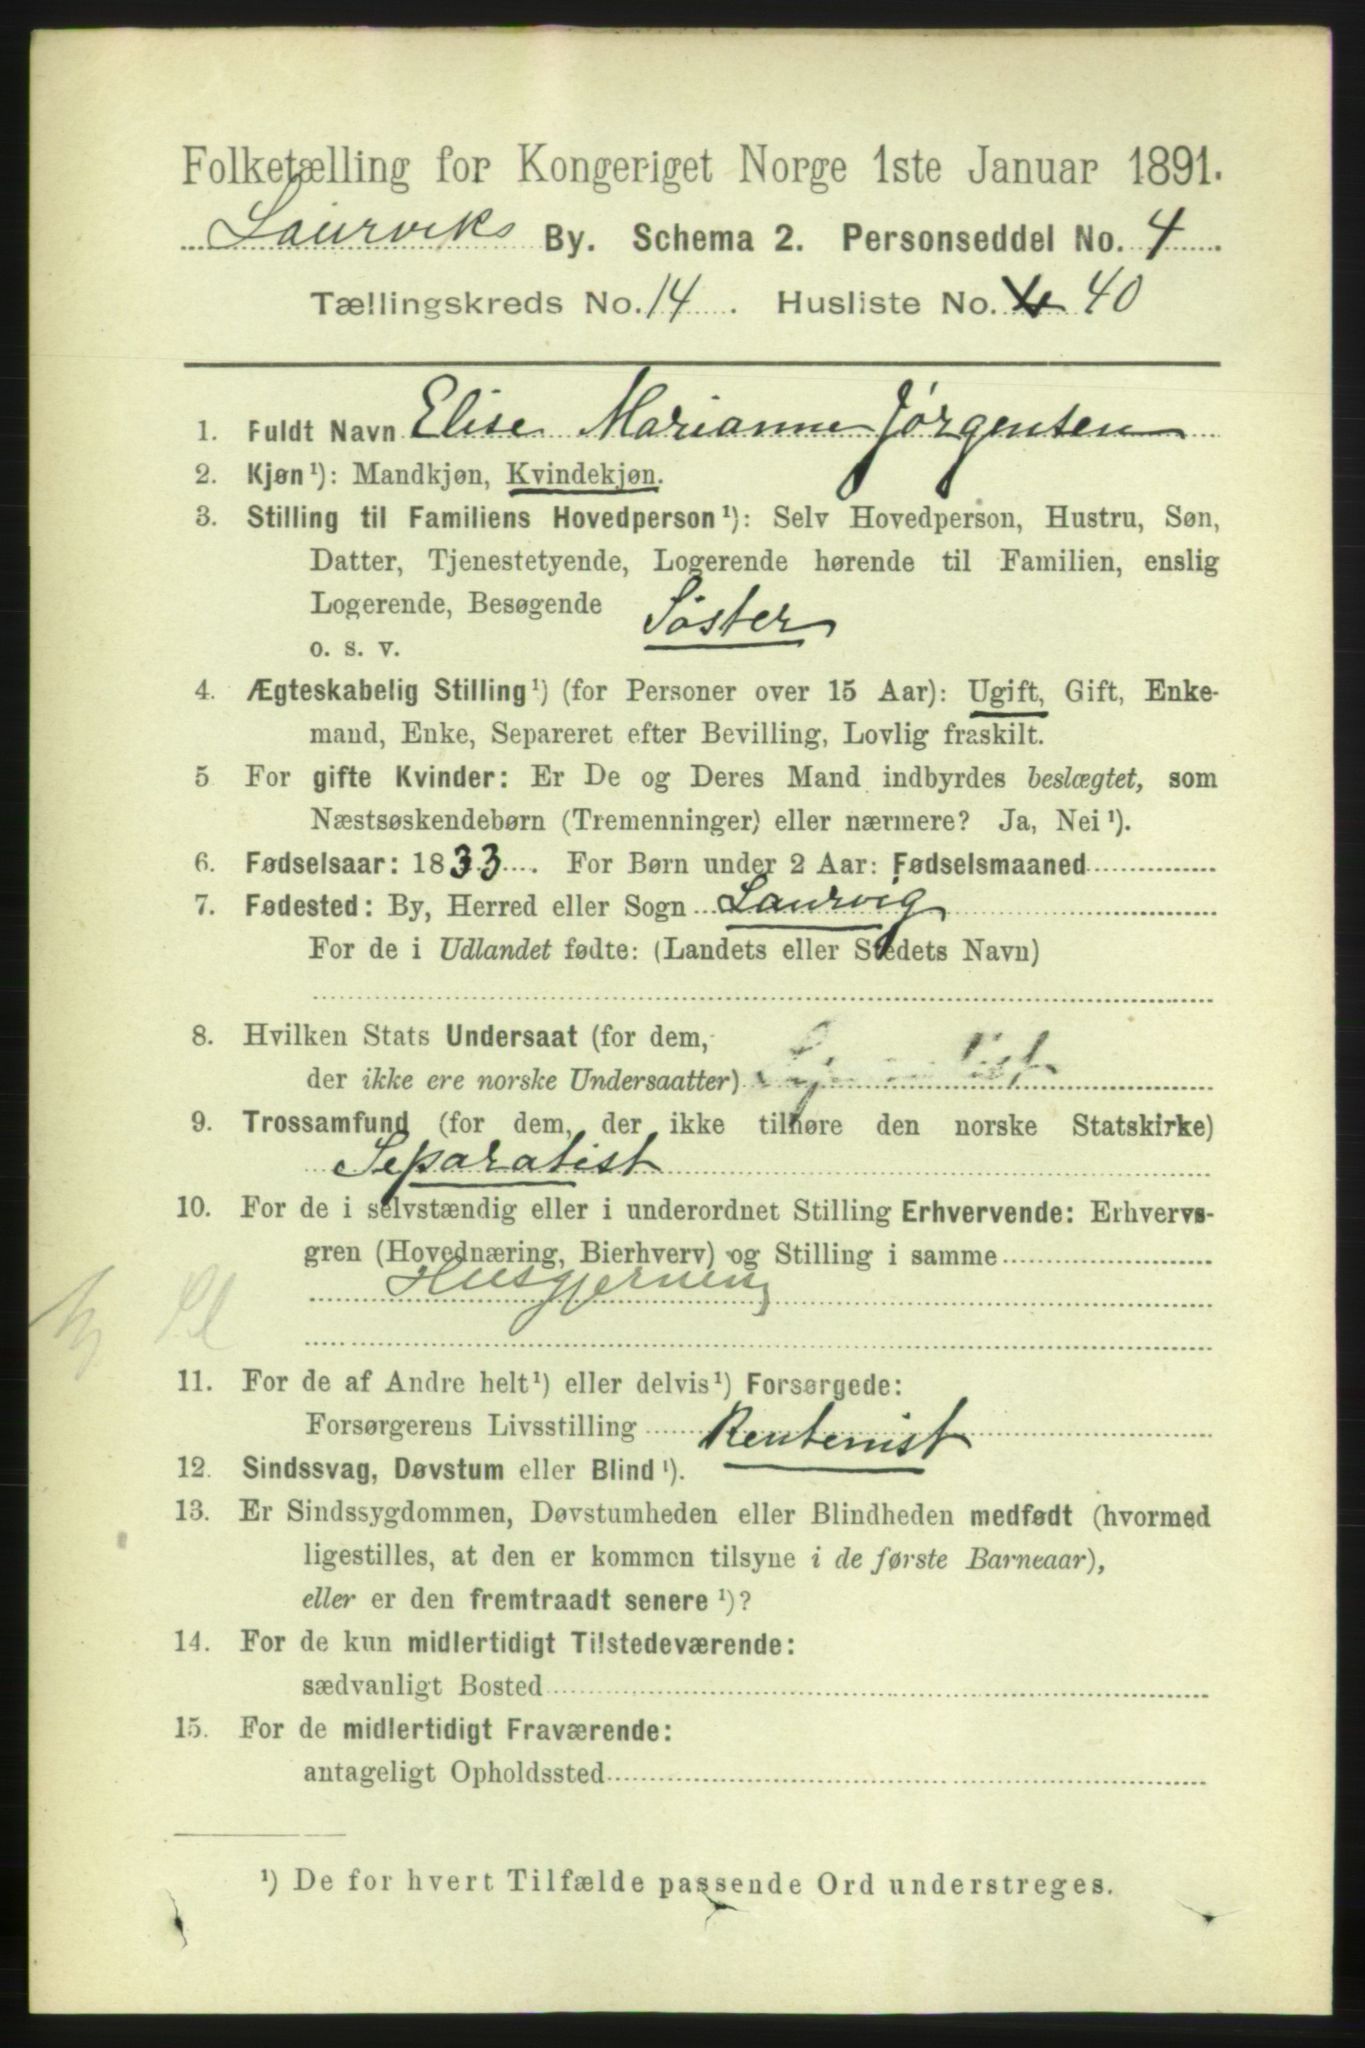 Folketælling for Kongeriget Norge 1ste Januar 1891.
Laurviks By. Schema 2. Personseddel No. 4
Tællingskreds No. 14. Husliste No. 40
1. Fuldt Navn Elise Marianne Jørgensen
2. Kjøn¹): Mandkjøn, Kvindekjøn.
3. Stilling til Familiens Hovedperson¹): Selv Hovedperson, Hustru, Søn,
Datter, Tjenestetyende, Logerende hørende til Familien, enslig
Logerende, Besøgende Søster
o. s. v.
4. Ægteskabelig Stilling¹) (for Personer over 15 Aar): Ugift, Gift, Enke-
mand, Enke, Separeret efter Bevilling, Lovlig fraskilt.
5 For gifte Kvinder: Er De og Deres Mand indbyrdes beslægtet, som
Næstsøskendebørn (Tremenninger) eller nærmere? Ja, Nei¹).
6. Fødselsaar: 1833. For Børn under 2 Aar: Fødselsmaaned
7. Fødested: By, Herred eller Sogn Laurvig
For de i Udlandet fødte: (Landets eller Stedets Navn)
8. Hvilken Stats Undersaat (for dem,
der ikke ere norske Undersaatter)
9. Trossamfund (for dem, der ikke tilhøre den norske Statskirke)
Separatist
10. For de i selvstændig eller i underordnet Stilling Erhvervende: Erhvervs-
gren (Hovednæring, Bierhverv) og Stilling i samme
Husgjerning
11. For de af Andre helt¹) eller delvis¹) Forsørgede:
Forsørgerens Livsstilling Rentenist
12. Sindssvag, Døvstum eller Blind¹).
13. Er Sindssygdommen, Døvstumheden eller Blindheden medfødt (hvormed
ligestilles, at den er kommen tilsyne i de første Barneaar),
eller er den fremtraadt senere¹)?
14. For de kun midlertidigt Tilstedeværende:
sædvanligt Bosted
15. For de midlertidigt Fraværende:
antageligt Opholdssted
¹) De for hvert Tilfælde passende Ord understreges.